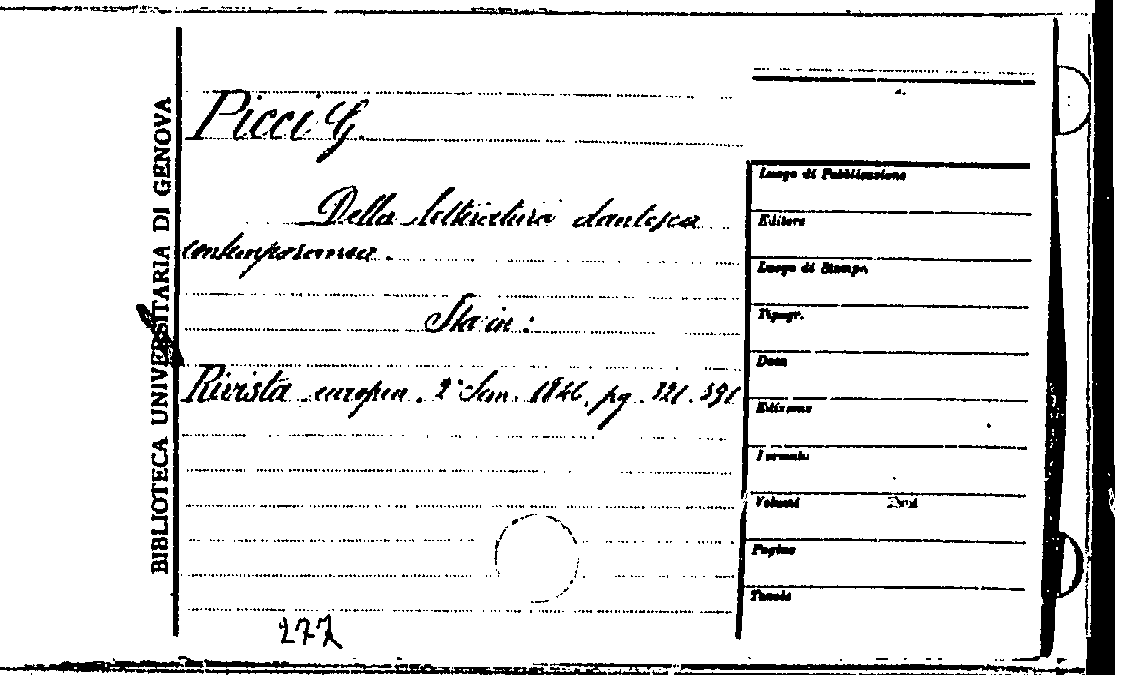 BIBLIOTECA UNIVERSITARIA DI GENOVA
Picci G.
Della letteratura dantesca
contemporanea.
Sta in:
Rivista europea. 2° Sem. 1846. pg. 321. 591
277
Luogo di Pubblicazione
Editore
Luogo di Stampa
Tipogr.
Data
Edizione
Formato
Volumi
Pagine
Tavole